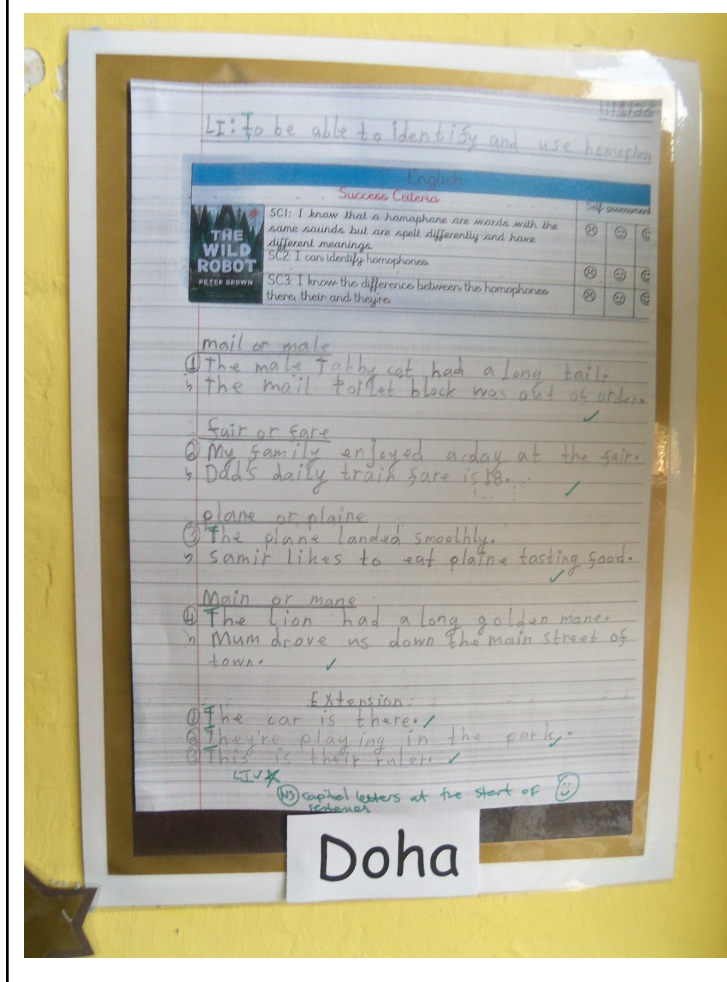 11/3/26
LI: To be able to identify and use homophon
English
Success Criteria
Self assessment
THE
WILD
ROBOT
PETER BROWN
SC1: I know that a homophone are words with the
same sounds but are spelt differently and have
different meanings.
SC2: I can identify homophones
SC3: I know the difference between the homophones
there, their and they're.
mail or male
① The male Tabby cat had a long tail.
↳ The mail toilet block was out of order.
fair or fare
② My family enjoyed a day at the fair.
↳ Dad's daily train fare is $8.
plane or plaine
③ The plane landed smoothly.
↳ Samir likes to eat plaine tasting food.
Main or mane
④ The Lion had a long golden mane.
↳ Mum drove us down The main street of
town.
Extension
① The car is there.
② They're playing in the park.
③ This is their ruler.
LI ✓
NS capital letters at the start of
sentences
Doha